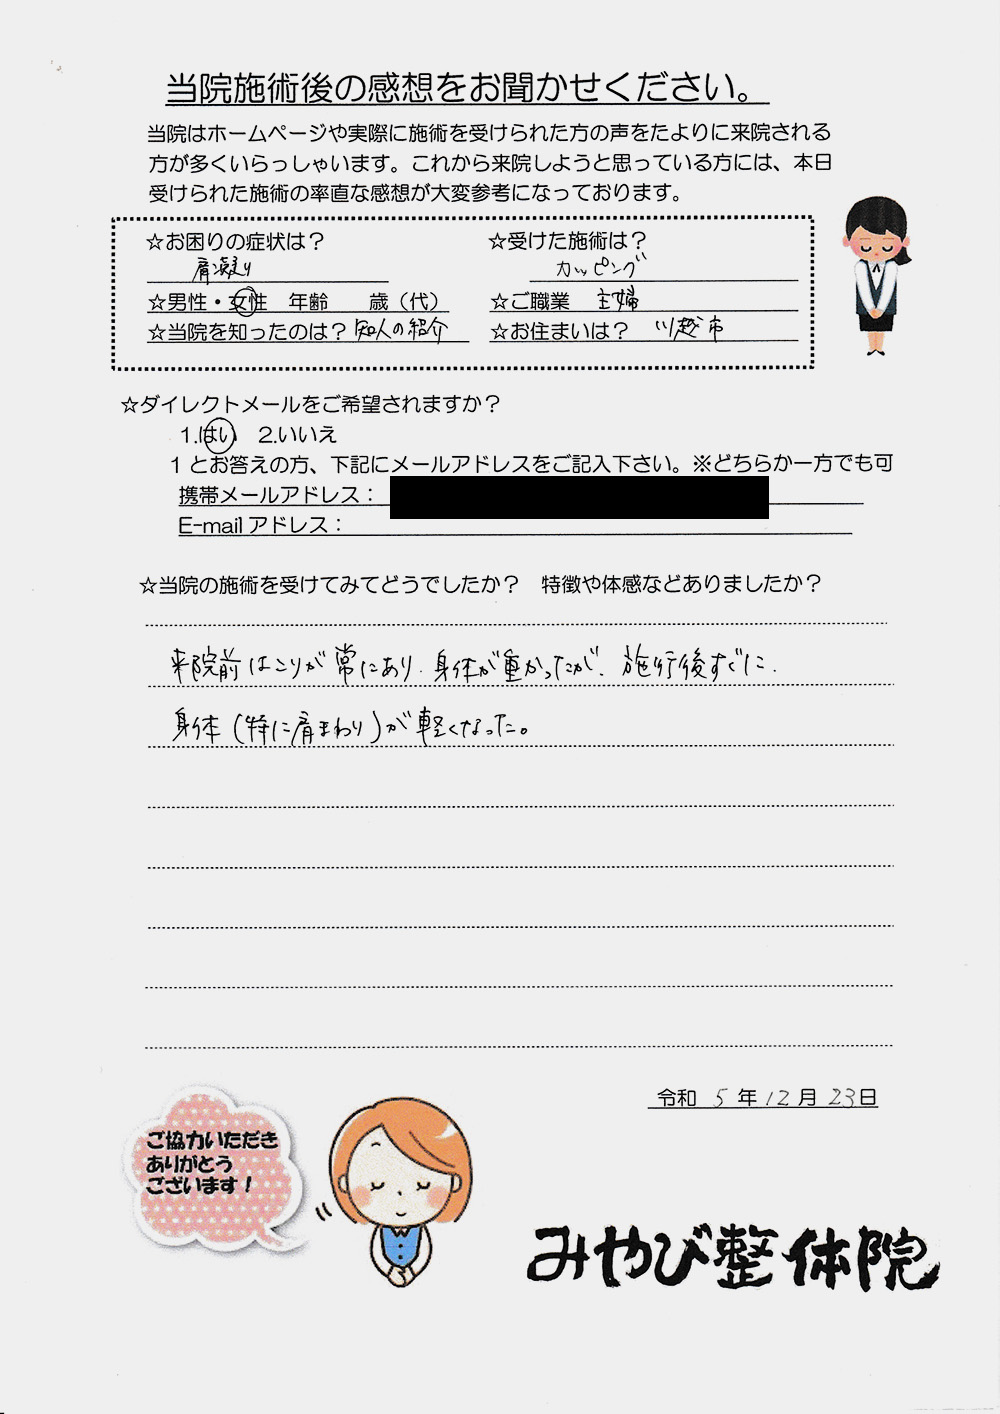 当院施術後の感想をお聞かせください。
当院はホームページや実際に施術を受けられた方の声をたよりに来院される
方が多くいらっしゃいます。これから来院しようと思っている方には、本日
受けられた施術の率直な感想が大変参考になっております。
☆お困りの症状は？ ☆受けた施術は？
肩凝り カッピング
☆男性・女性 年齢 歳（代） ☆ご職業 主婦
☆当院を知ったのは？知人の紹介 ☆お住まいは？ 川越市
☆ダイレクトメールをご希望されますか？
1.はい 2.いいえ
1とお答えの方、下記にメールアドレスをご記入下さい。※どちらか一方でも可
携帯メールアドレス：
E-mailアドレス：
☆当院の施術を受けてみてどうでしたか？ 特徴や体感などありましたか？
来院前はこりが常にあり、身体が重かったが、施術後すぐに、
身体（特に肩まわり）が軽くなった。
令和 5年12月23日
ご協力いただき
ありがとう
ございます！
みやび整体院